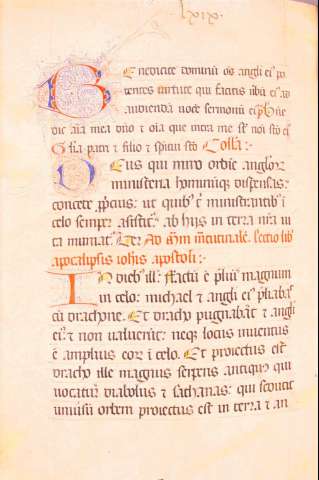 Benedicite dominū oēs angli ei' po
tentes uirtute qui facitis ūbū ei' ad
audiendā uocē sermonū ei' ps Bñe
dic aīa mea dño & oīa que intra me st noī scō ei'
Gl̃ia patri & filio & spiritui scō Colla:·
Deus qui miro ordine anglor̄
ministeria hominūq̄ dispensas:
concede ꝓpicius: ut quib' ē ministrantib' ī
celo semper assistit̄: ab hijs in terra nr̄a ui
ta muniat̄. Per Ad
lectio lib'
apocalipsis iohis apostoli:·
In dieb' ill': Factū ē p̄liū magnum
in celo: michael & angli ei' p̄liabāt̄
cū drachone. Et draco pugnabāt & angli
ei': & non ualuerūt: neq̄ locus inuentus
ē amplius eor̄ ī celo. Et proiectus est
draco ille magnus serpens antiquus qui
uocatur diabolus & sathanas: qui seducit
uniūsū orbem proiectus est in terra & an